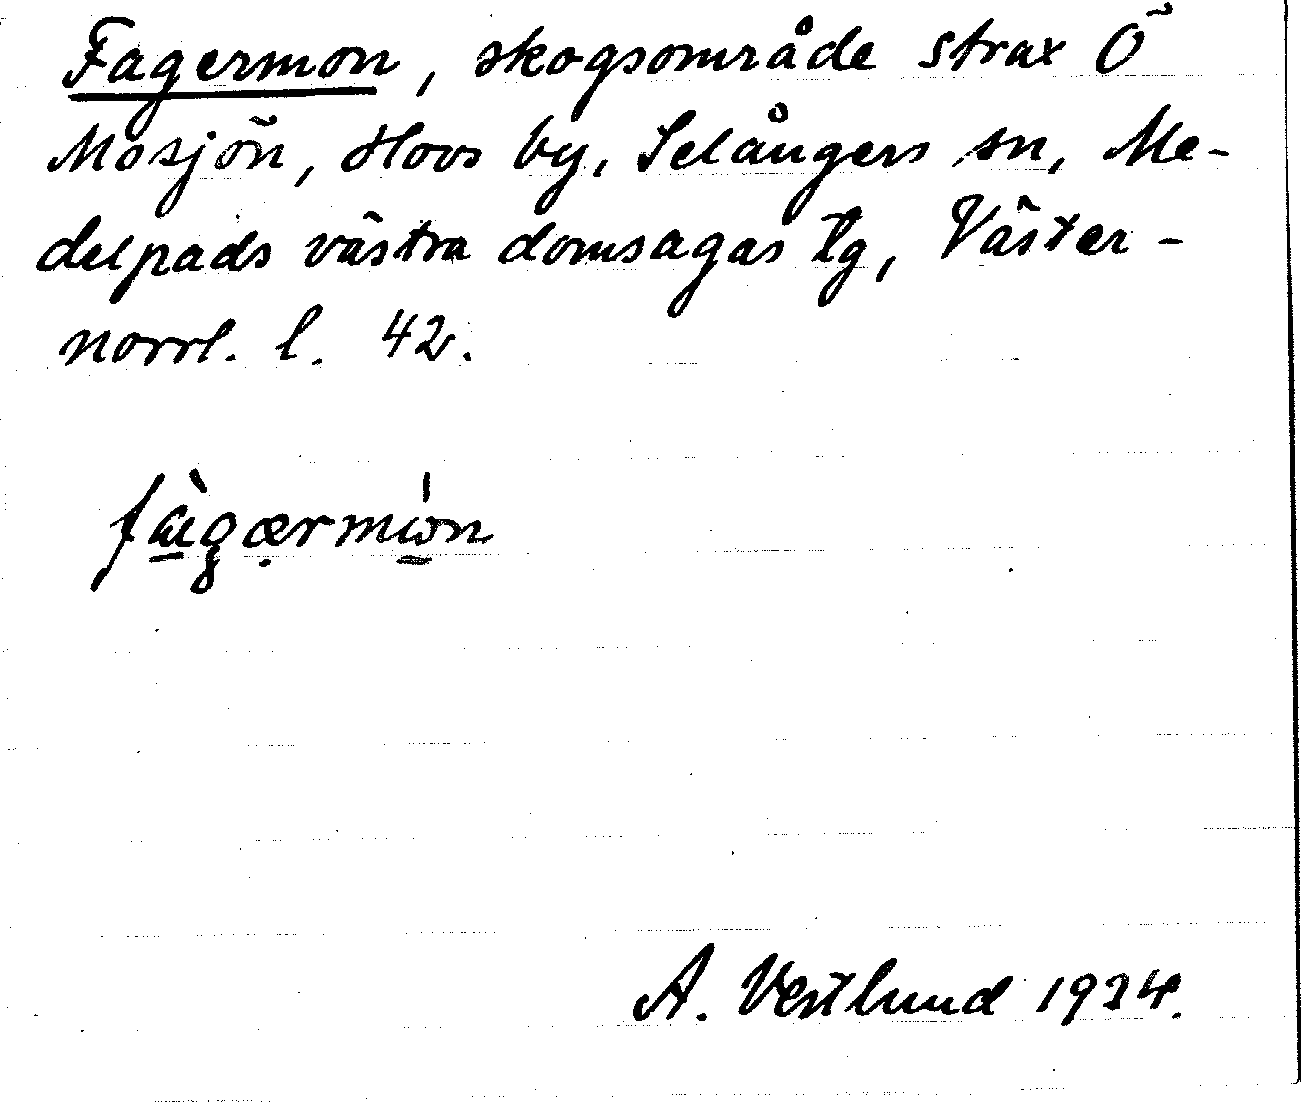 Fagermon, skogsområde strax Ö
Mosjön, Hovs by, Selångers sn, Me-
delpads västra domsagas tg, Väster-
norrl. l. 42.
fàgærmón
A. Vestlund 1924.